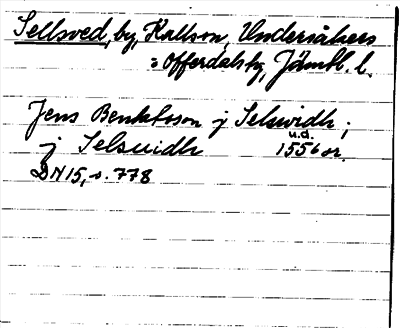 Sellsved, by, Kallson, Undersåkers
o Offerdals tg, Jämtl. l.
Jens Benktsson j Selswidh ;
u.d.
j Selsuidh 1556 or.
DN 15, s. 778